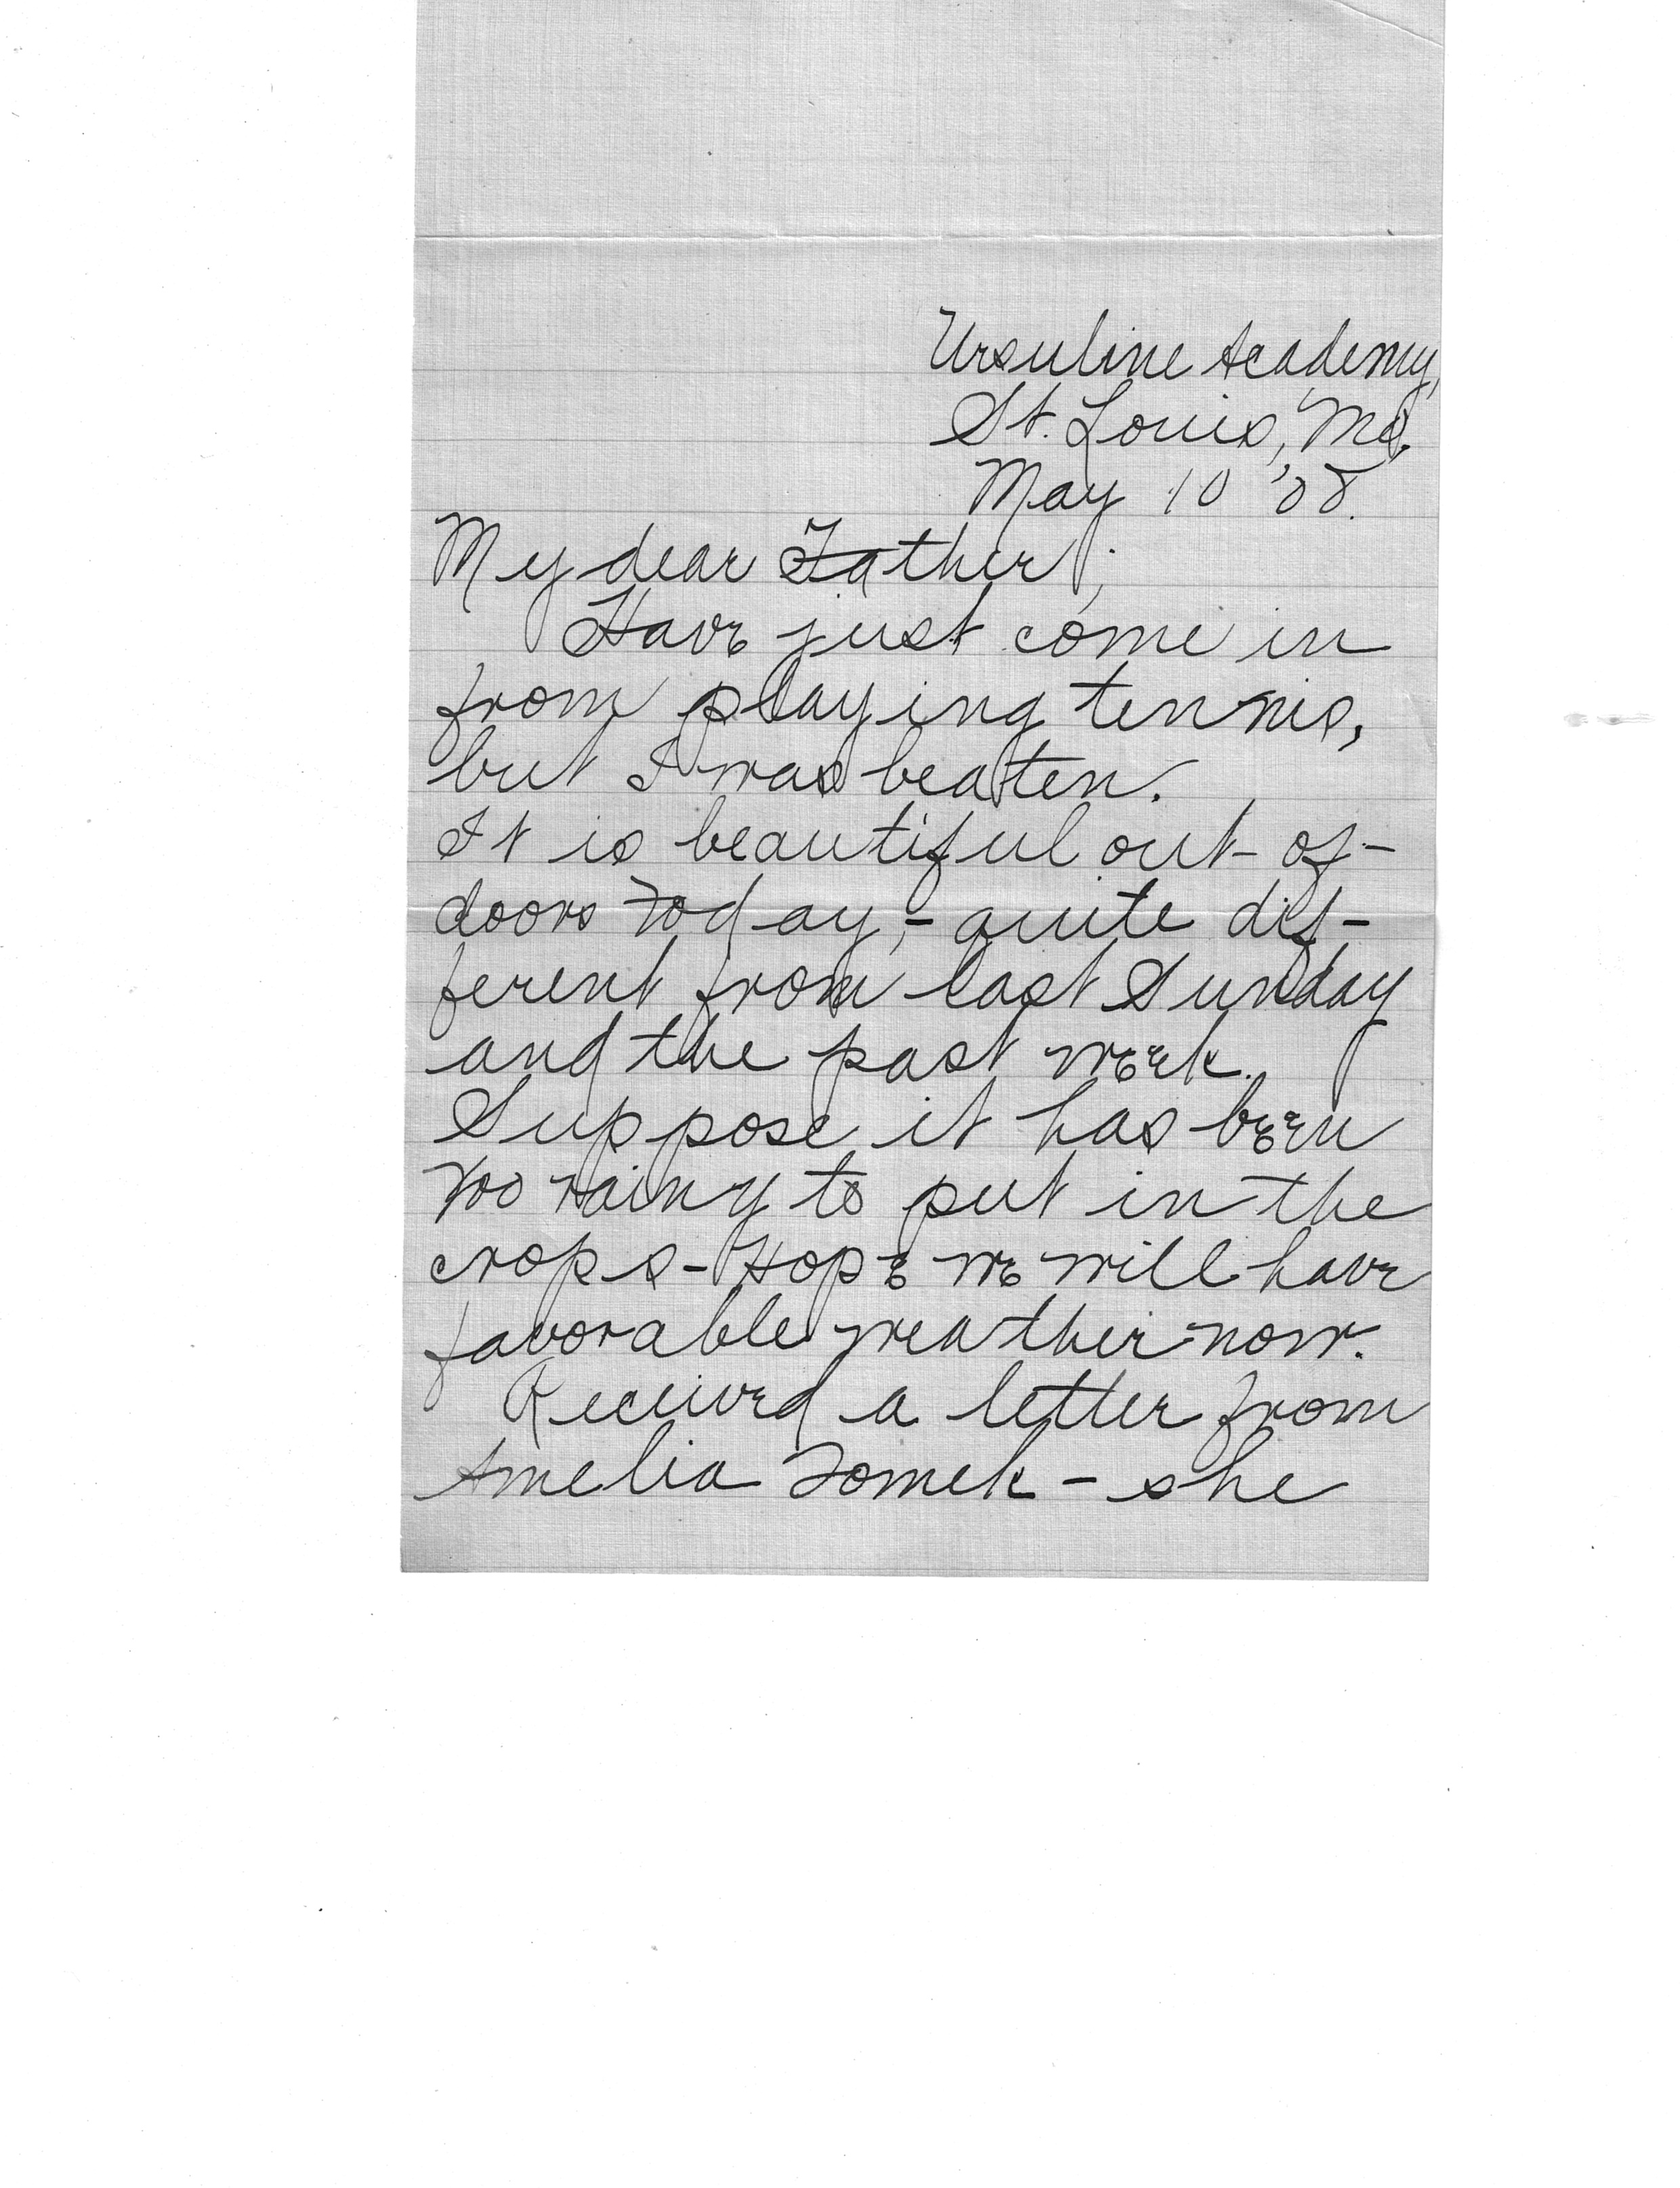 Ursuline Academy,
St. Louis, Mo.
May 10 '08.
My dear Father;
Have just come in
from playing tennis,
but I was beaten.
It is beautiful out-of-
doors today,- quite dif-
ferent from last Sunday
and the past week.
Suppose it has been
too rainy to put in the
crops - Hope we will have
favorable weather now.
Received a letter from
Amelia Tomek - she